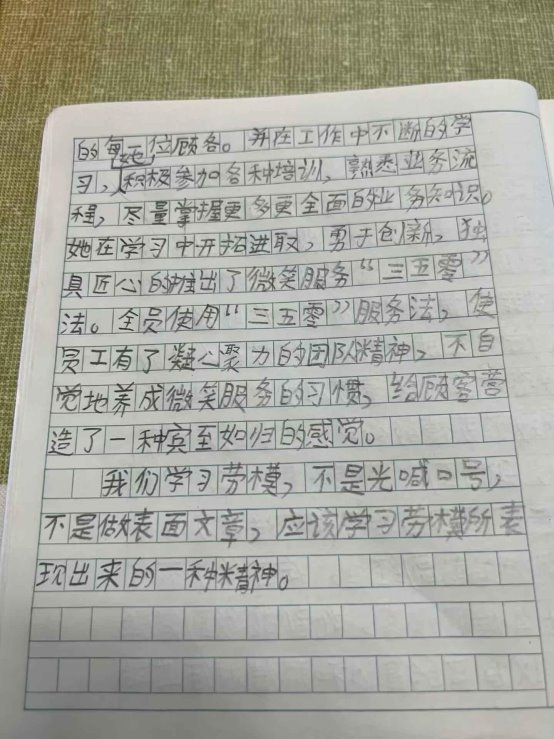 的每她位顾客。并在工作中不断的学
习，积极参加各种培训，熟悉业务流
程，尽量掌握更多更全面的业务知识。
她在学习中开拓进取，勇于创新，独
具匠心的推出了微笑服务“三五零”
法。全员使用“三五零”服务法，使
员工有了凝心聚力的团队精神，不自
觉地养成微笑服务的习惯，给顾客营
造了一种宾至如归的感觉。
我们学习劳模，不是光喊口号，
不是做表面文章，应该学习劳模所表
现出来的一种精神。